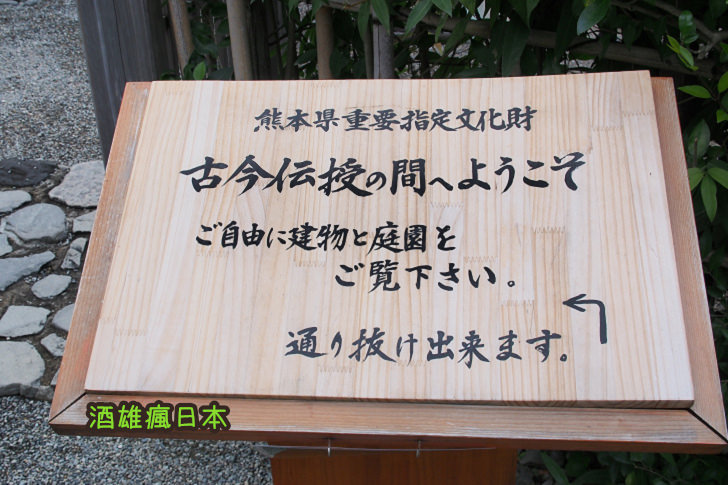 熊本県重要指定文化財
古今伝授の間へようこそ
ご自由に建物と庭園を
ご覧下さい。
通り抜け出来ます。
酒雄瘋日本